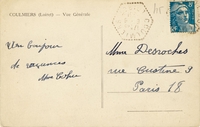 COULMIERS (Loiret) — Vue Générale
Un bonjour
de vacances
Mme Desroches
rue Custine 3
Paris 18